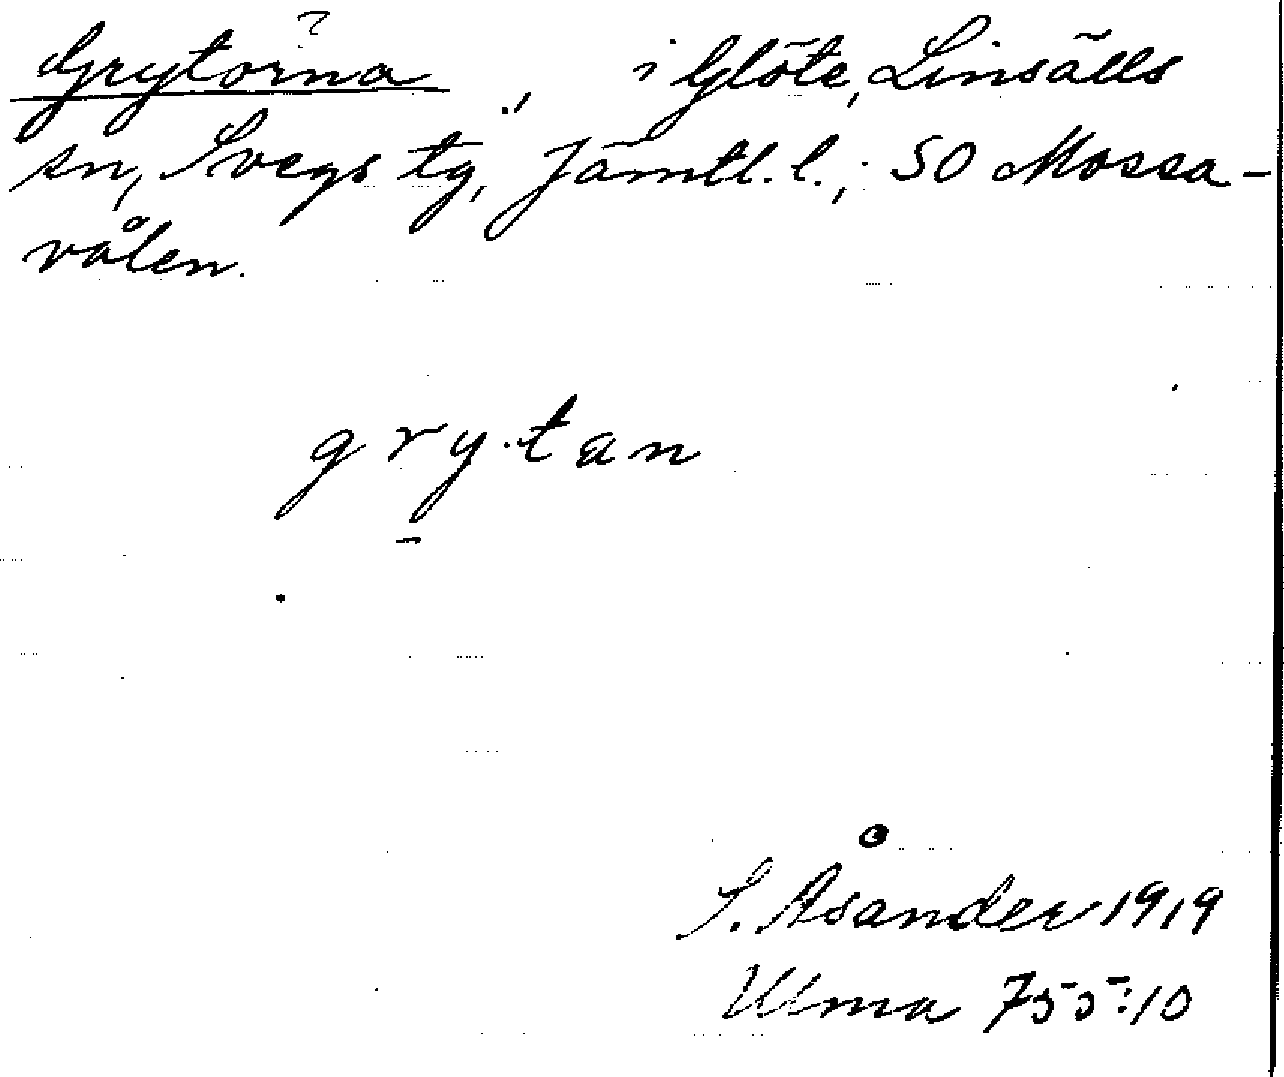 ?
Grytorna, i Glöte, Linsälls
sn, Svegs tg, Jämtl. l.; SO Mossa-
vålen.
grytan
S. Åsander 1919
Ulma 755:10